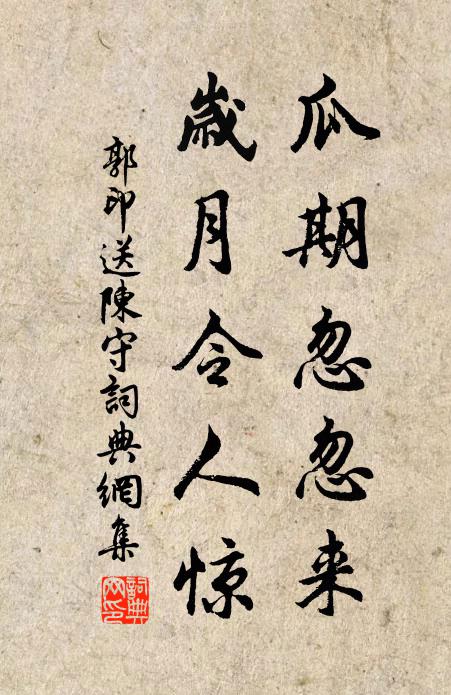 瓜期忽忽来
歲月令人惊
郭印送陳守詞典網集
詞典网印